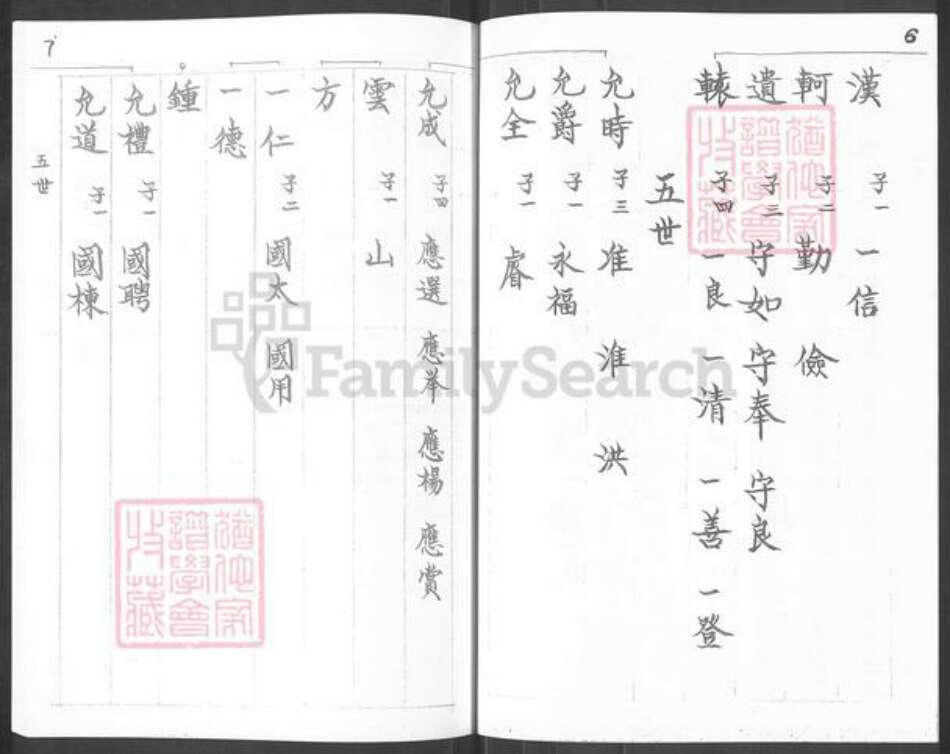 6
漢 子一 一信
軻 子二 勤 儉
遺 子三 守如 守奉 守良
轅 子四 一良 一清 一善 一登
五世
允時 子三 准 淮 洪
允爵 子一 永福
允全 子一 睿
7
允成 子四 應選 應举 應楊 應賞
雲 子一 山
方
一仁 子二 國太 國用
一德
鍾
允禮 子一 國聘
允道 子一 國棟
五世
FamilySearch
譜學會
收藏
譜學會
收藏